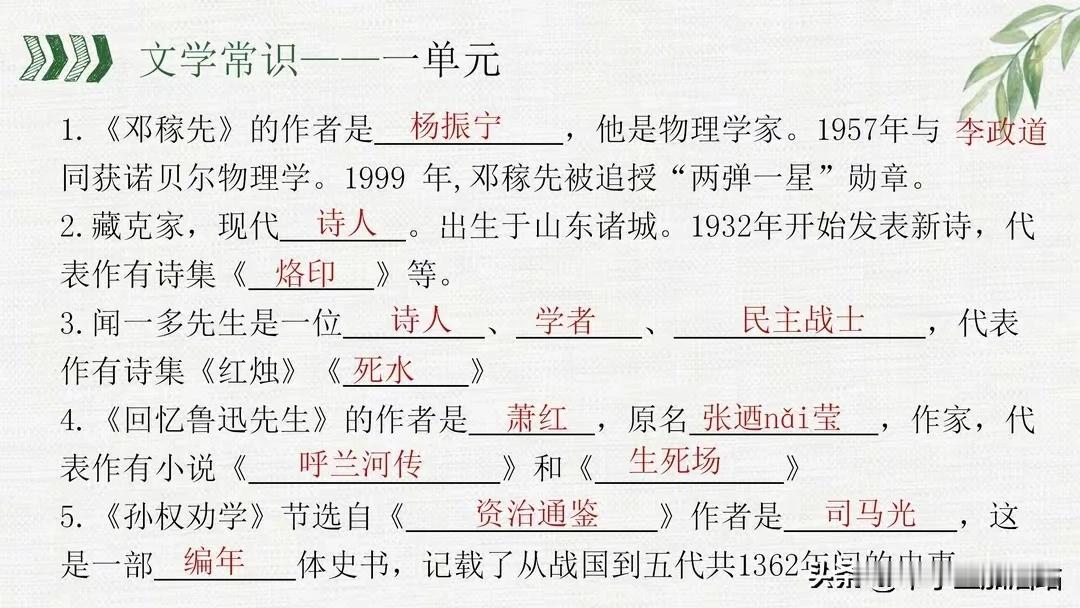 文学常识——一单元
1.《邓稼先》的作者是杨振宁，他是物理学家。1957年与 李政道
同获诺贝尔物理学。1999 年,邓稼先被追授“两弹一星”勋章。
2.藏克家，现代诗人。出生于山东诸城。1932年开始发表新诗，代
表作有诗集《烙印》等。
3.闻一多先生是一位诗人、学者、民主战士，代表
作有诗集《红烛》《死水》
4.《回忆鲁迅先生》的作者是萧红，原名张迺nǎi莹，作家，代
表作有小说《呼兰河传》和《生死场》
5.《孙权劝学》节选自《资治通鉴》作者是司马光，这
是一部编年体史书，记载了从战国到五代共1362年间的史事
头条